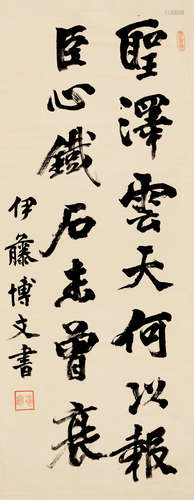 聖澤雲天何以報
臣心鐵石未曾衰
伊藤博文書